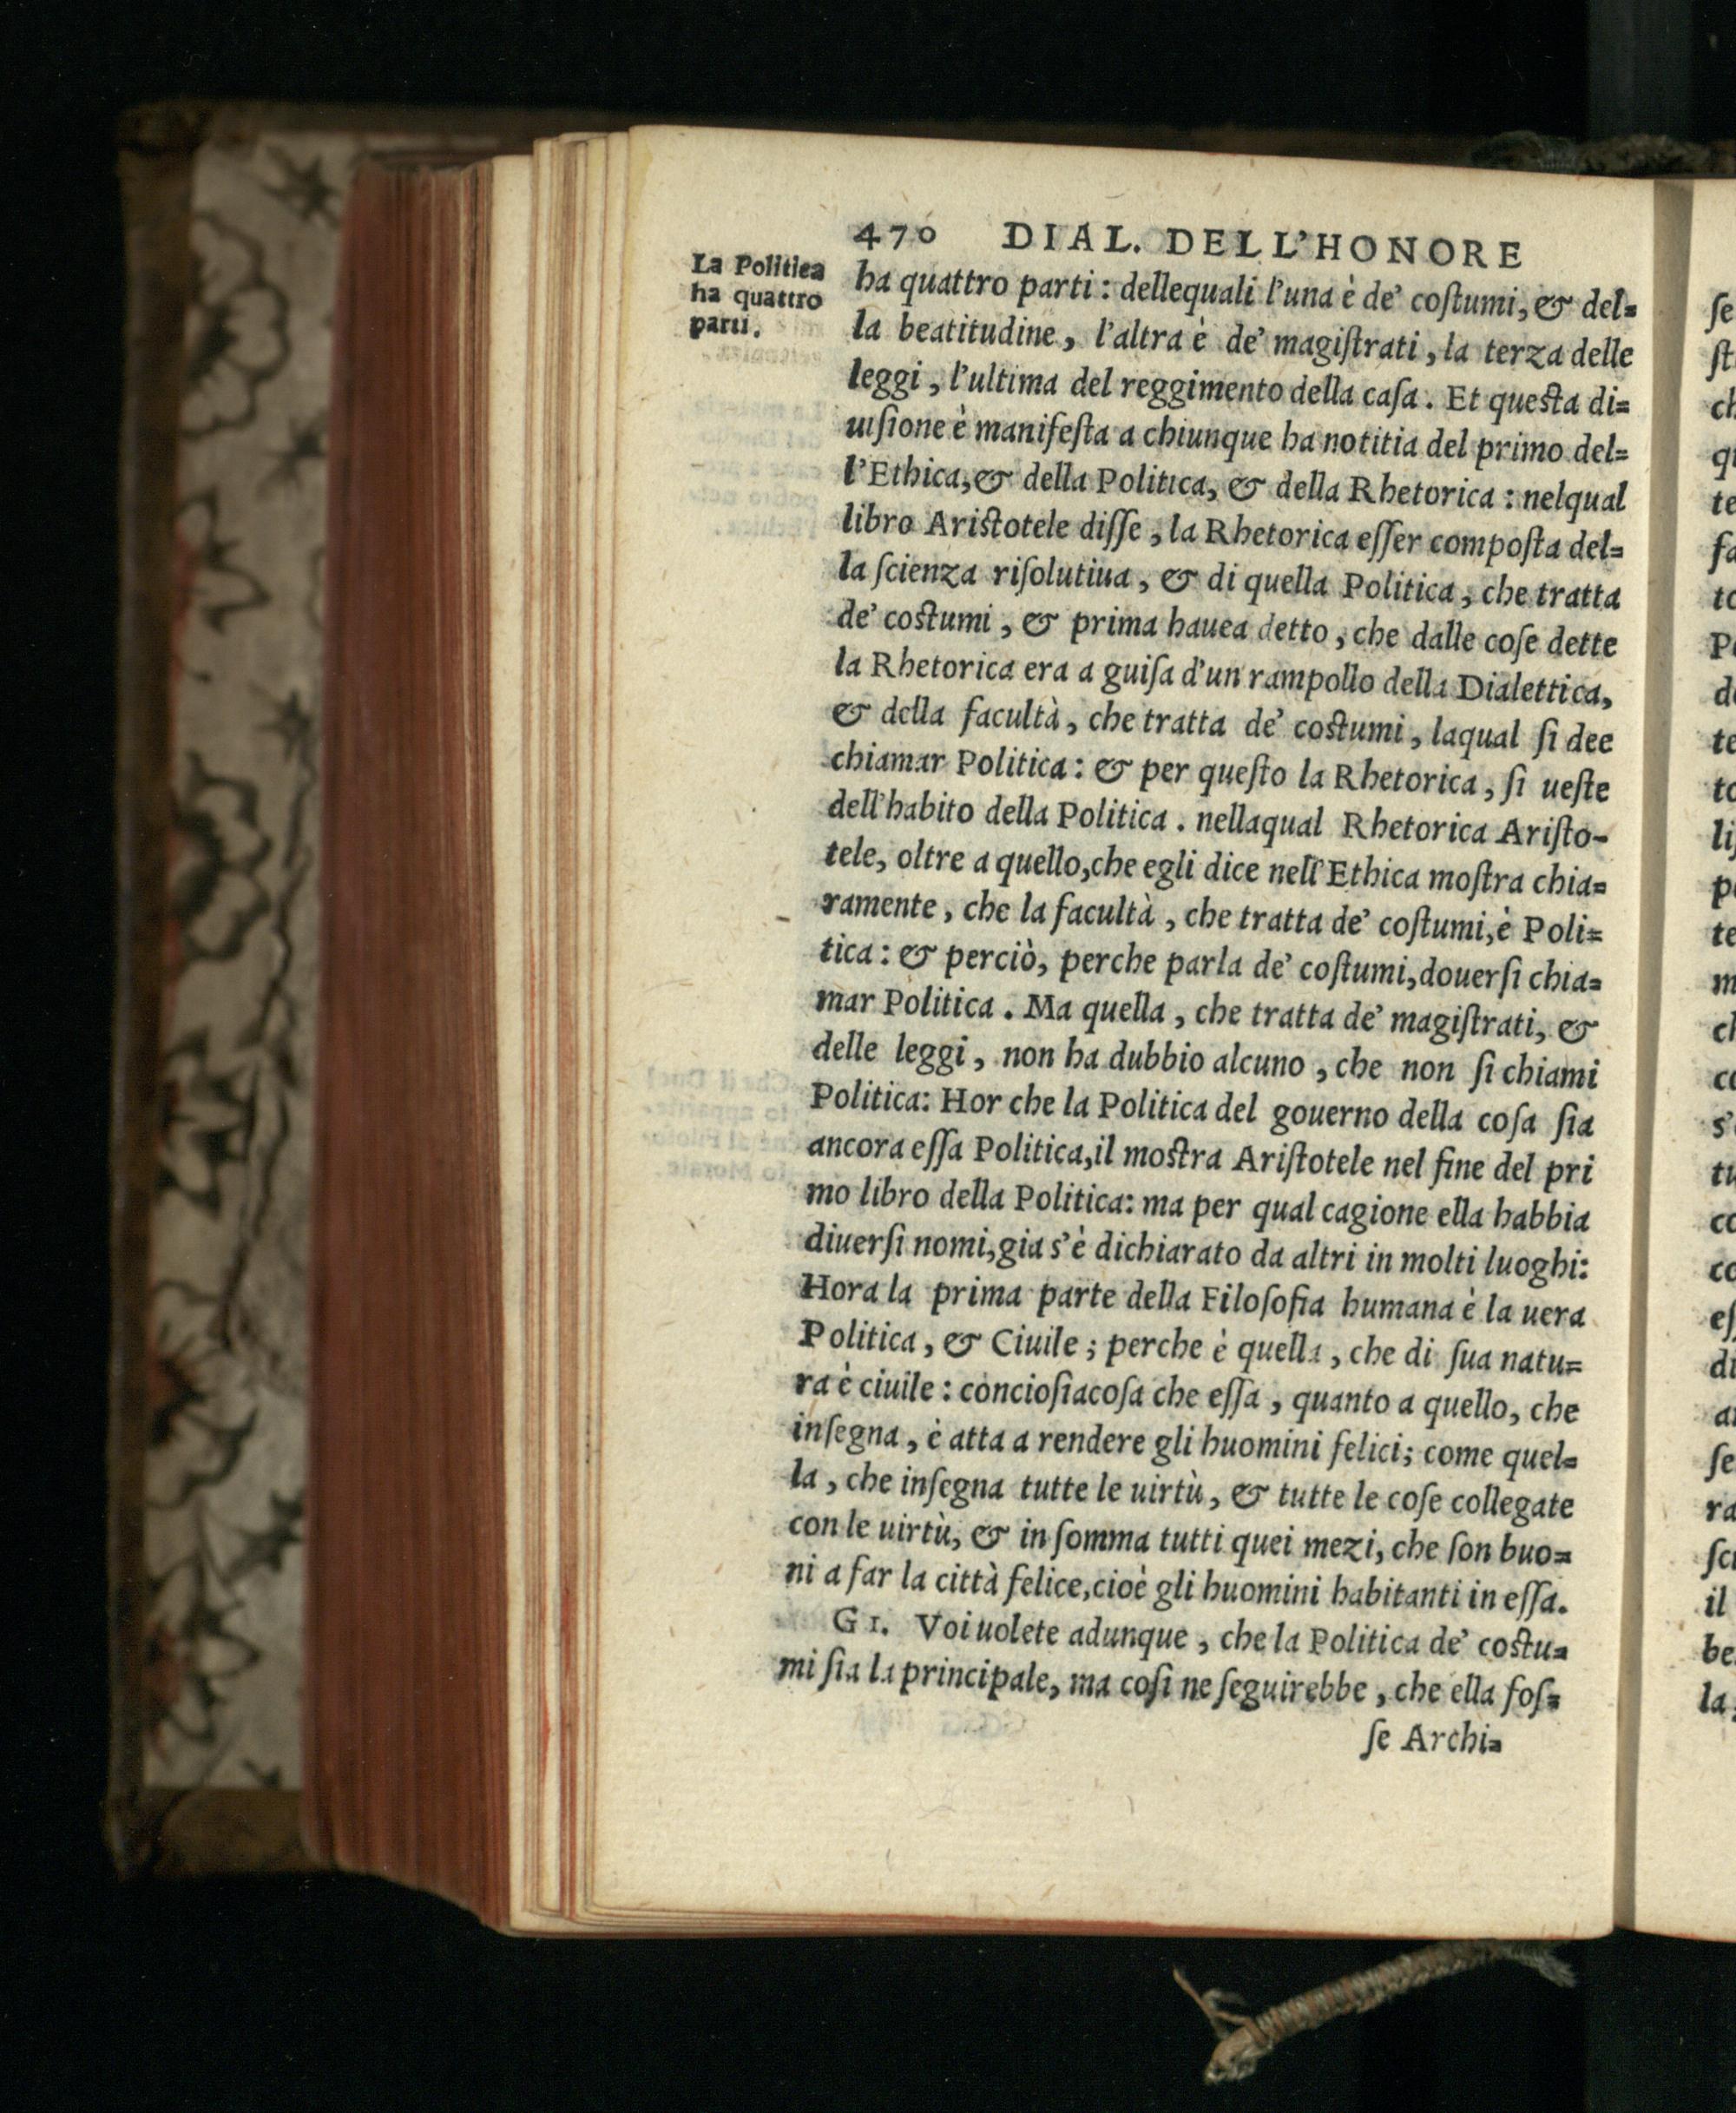 470 DIAL. DELL'HONORE
La Politica
ha quattro
parti.
ha quattro parti: dellequali l'una è de' coſtumi, & del=
la beatitudine, l'altra è de' magiſtrati, la terza delle
leggi, l'ultima del reggimento della caſa. Et queſta di=
uiſione è manifeſta a chiunque ha notitia del primo del=
l'Ethica, & della Politica, & della Rhetorica: nelqual
libro Ariſtotele diſſe, la Rhetorica eſſer compoſta del=
la ſcienza riſolutiua, & di quella Politica, che tratta
de' coſtumi, & prima hauea detto, che dalle coſe dette
la Rhetorica era a guiſa d'un rampollo della Dialettica,
& della facultà, che tratta de' coſtumi, laqual ſi dee
chiamar Politica: & per queſto la Rhetorica, ſi ueſte
dell'habito della Politica. nellaqual Rhetorica Ariſto-
tele, oltre a quello, che egli dice nell'Ethica moſtra chia=
ramente, che la facultà, che tratta de' coſtumi, è Poli=
tica: & perciò, perche parla de' coſtumi, douerſi chia=
mar Politica. Ma quella, che tratta de' magiſtrati, &
delle leggi, non ha dubbio alcuno, che non ſi chiami
Politica: Hor che la Politica del gouerno della coſa ſia
ancora eſſa Politica, il moſtra Ariſtotele nel fine del pri
mo libro della Politica: ma per qual cagione ella habbia
diuerſi nomi, gia s'è dichiarato da altri in molti luoghi:
Hora la prima parte della Filoſofia humana è la uera
Politica, & Ciuile; perche è quella, che di ſua natu=
ra è ciuile: concioſiacoſa che eſſa, quanto a quello, che
inſegna, è atta a rendere gli huomini felici; come quel=
la, che inſegna tutte le uirtù, & tutte le coſe collegate
con le uirtù, & in ſomma tutti quei mezi, che ſon buo=
ni a far la città felice, cioè gli huomini habitanti in eſſa.
GI. Voi uolete adunque, che la Politica de' coſtu=
mi ſia la principale, ma coſi ne ſeguirebbe, che ella foſ=
ſe Archi=